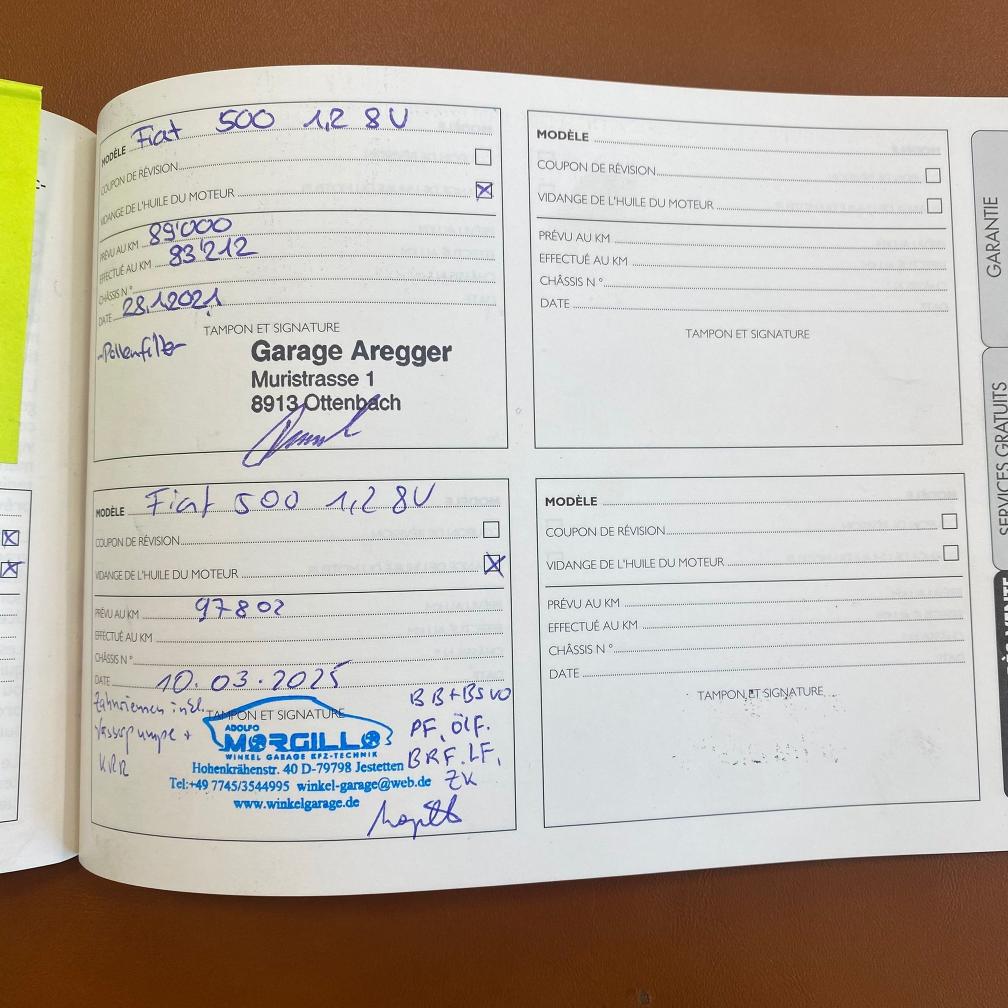 MODÈLE Fiat 500 1,2 8V
COUPON DE RÉVISION
VIDANGE DE L'HUILE DU MOTEUR
PRÉVU AU KM 89'000
EFFECTUÉ AU KM 83'212
CHÂSSIS N°
DATE 28.1.2021
TAMPON ET SIGNATURE
-Pollenfilter
Garage Aregger
Muristrasse 1
8913 Ottenbach
MODÈLE Fiat 500 1,2 8V
COUPON DE RÉVISION
VIDANGE DE L'HUILE DU MOTEUR
PRÉVU AU KM 97802
EFFECTUÉ AU KM
CHÂSSIS N°
DATE 10.03.2025
TAMPON ET SIGNATURE
Zahnriemen inkl.
Wasserpumpe +
KRR
BB+BS VO
PF, ÖLF.
BRF. LF,
ZK
ADOLFO
MORGILLO
WINKEL GARAGE KFZ-TECHNIK
Hohenkrähenstr. 40 D-79798 Jestetten
Tel:+49 7745/3544995 winkel-garage@web.de
www.winkelgarage.de
MODÈLE
COUPON DE RÉVISION
VIDANGE DE L'HUILE DU MOTEUR
PRÉVU AU KM
EFFECTUÉ AU KM
CHÂSSIS N°
DATE
TAMPON ET SIGNATURE
MODÈLE
COUPON DE RÉVISION
VIDANGE DE L'HUILE DU MOTEUR
PRÉVU AU KM
EFFECTUÉ AU KM
CHÂSSIS N°
DATE
TAMPON ET SIGNATURE
GARANTIE
SERVICES GRATUITS